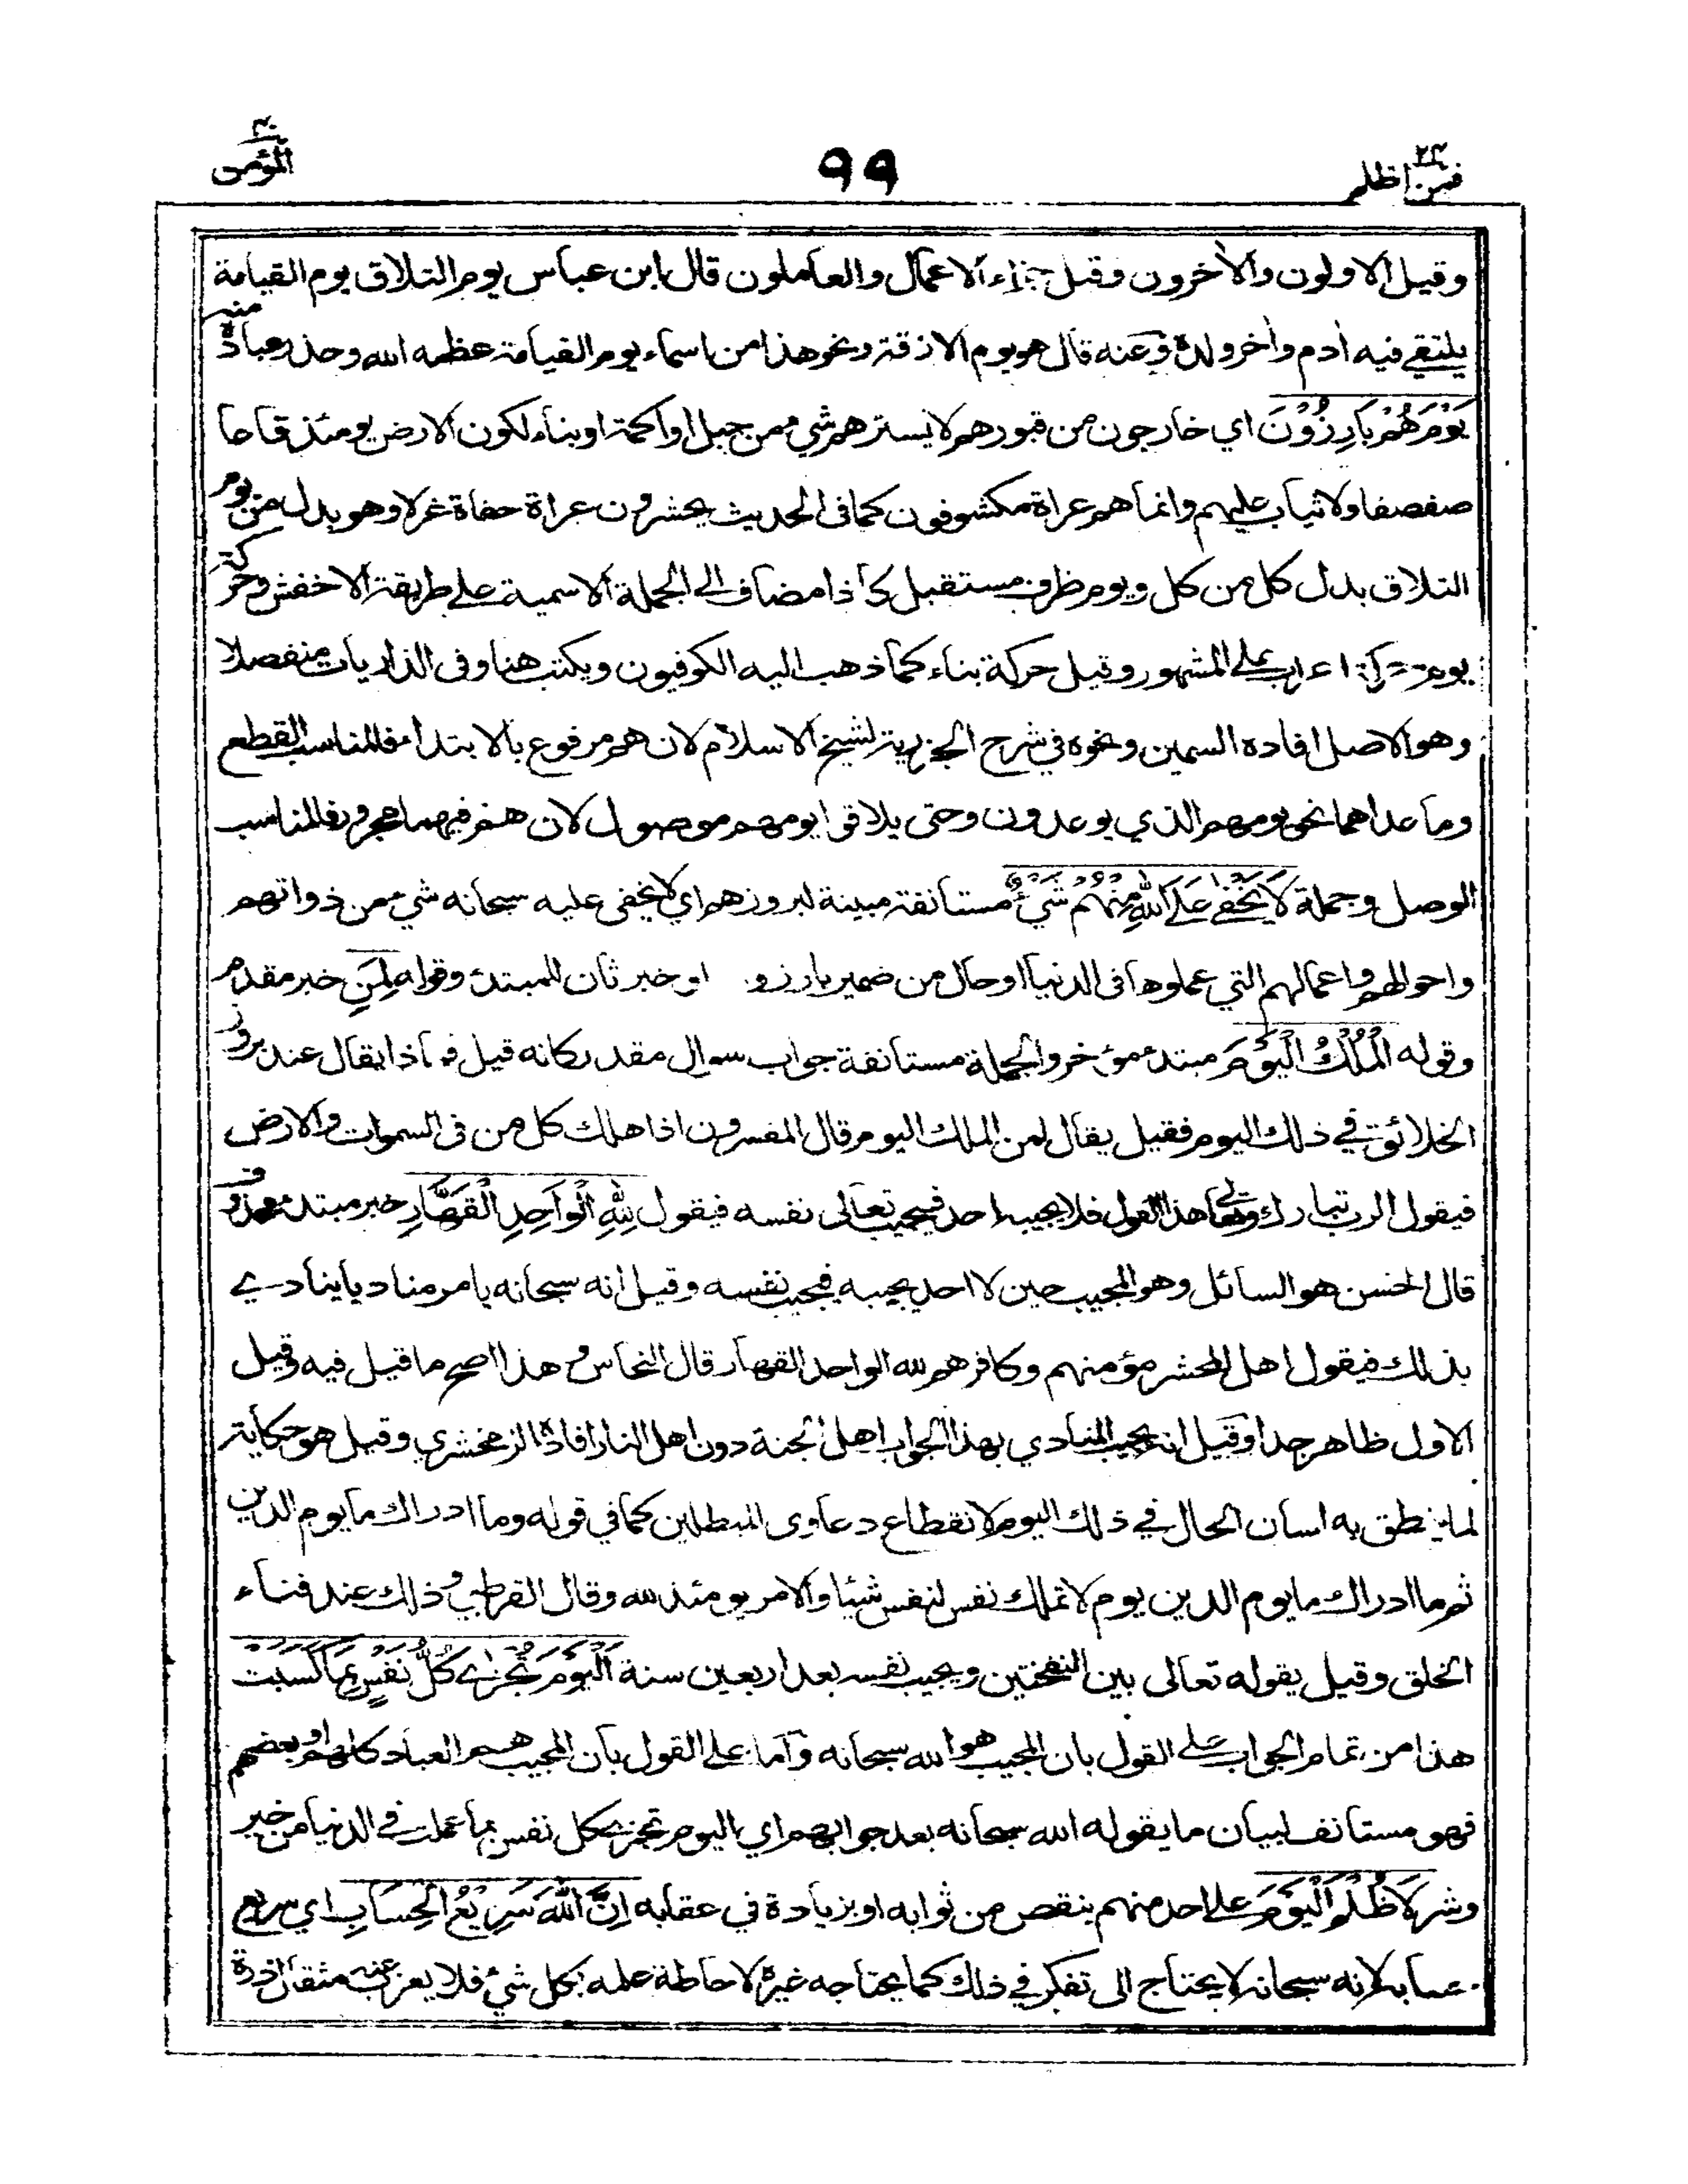 فمن اظلم ٢٤
٩٩
المؤمن ٤٠
وقيل الاولون والأخرون وقيل جزاء الاعمال والعاملون قال ابن عباس يوم التلاق يوم القيامة
يلتقي فيه أدم وأخر ولده وعنه قال هو يوم الازفة ونحو هذا من اسماء يوم القيامة عظمه الله وحذر عباده منه
يَوْمَ هُمْ بَارِزُوْنَ اي خارجون من قبورهم لا يسترهم شيء من جبل او اكمة او بناء لكون الارض يومئذ قاعا
صفصفا ولا ثياب عليهم وانما هم عراة مكشوفون كما فى الحديث يحشرون عراة حفاة غرلا وهو بدل من يوم
التلاق بدل كل من كل ويوم ظرف مستقبل كاذا مضاف الى الجملة الاسمية على طريقة الاخفش وحركة
يوم حركة اعراب على المشهور وقيل حركة بناء كما ذهب اليه الكوفيون ويكتب هنا وفى الذاريات منفصلا
وهو الاصل افاده السمين ونحوه في شرح الجزرية لشيخ الاسلام لان هم مرفوع بالابتداء فالمناسب القطع
وما عداهما نحو يومهم الذي يوعدون وحتى يلاقوا يومهم موصول لان هم فيهما مجرور فالمناسب
الوصل وجملة لَا يَخْفٰى عَلَى اللّٰهِ مِنْهُمْ شَيْءٌ مستانفة مبينة لبروزهم اي لا يخفى عليه سبحانه شيء من ذواتهم
واحوالهم واعمالهم التي عملوها فى الدنيا او حال من ضمير بارزو او خبر ثان للمبتدء وقوله لِمَنِ خبر مقدم
وقوله الْمُلْكُ الْيَوْمَ مبتدء مؤخر والجملة مستانفة جواب سوال مقدر كانه قيل فماذا يقال عند بروز
الخلائق في ذلك اليوم فقيل يقال لمن الملك اليوم قال المفسرون اذا هلك كل من فى السموات والارض
فيقول الرب تبارك وتعالى هذا القول فلا يجيبه احد فيجيب تعالى نفسه فيقول لِلّٰهِ الْوَاحِدِ الْقَهَّارِ خبر مبتدء محذوف
قال الحسن هو السائل وهو المجيب حين لا احد يجيبه فيجيب نفسه وقيل انه سبحانه يامر مناديا ينادي
بذلك فيقول اهل المحشر مؤمنهم وكافرهم لله الواحد القهار قال النحاس وهذا اصح ما قيل فيه وقيل
الاول ظاهر جدا وقيل انه يجيب المنادي بهذا الجواب اهل الجنة دون اهل النار افاده الزمخشري وقيل هو حكاية
لما ينطق به لسان الحال في ذلك اليوم لانقطاع دعاوى المبطلين كما في قوله وما ادراك ما يوم الدين
ثم ما ادراك ما يوم الدين يوم لا تملك نفس لنفس شيئا والامر يومئذ لله وقال القرطبي وذلك عند فناء
الخلق وقيل يقوله تعالى بين النفختين ويجيب نفسه بعد اربعين سنة اَلْيَوْمَ تُجْزٰى كُلُّ نَفْسٍ بِمَا كَسَبَتْ
هذا من تمام الجواب على القول بان المجيب هو الله سبحانه واما على القول بان المجيب هم العباد كلهم او بعضهم
فهو مستانف لبيان ما يقوله الله سبحانه بعد جوابهم اي اليوم تجزى كل نفس بما عملت في الدنيا من خير
وشر لَا ظُلْمَ الْيَوْمَ على احد منهم ينقص من ثوابه او بزيادة في عقابه اِنَّ اللّٰهَ سَرِيْعُ الْحِسَابِ اي سريع
حسابه لانه سبحانه لا يحتاج الى تفكر في ذلك كما يحتاجه غيره لاحاطة علمه بكل شيء فلا يعزب عنه مثقال ذرة